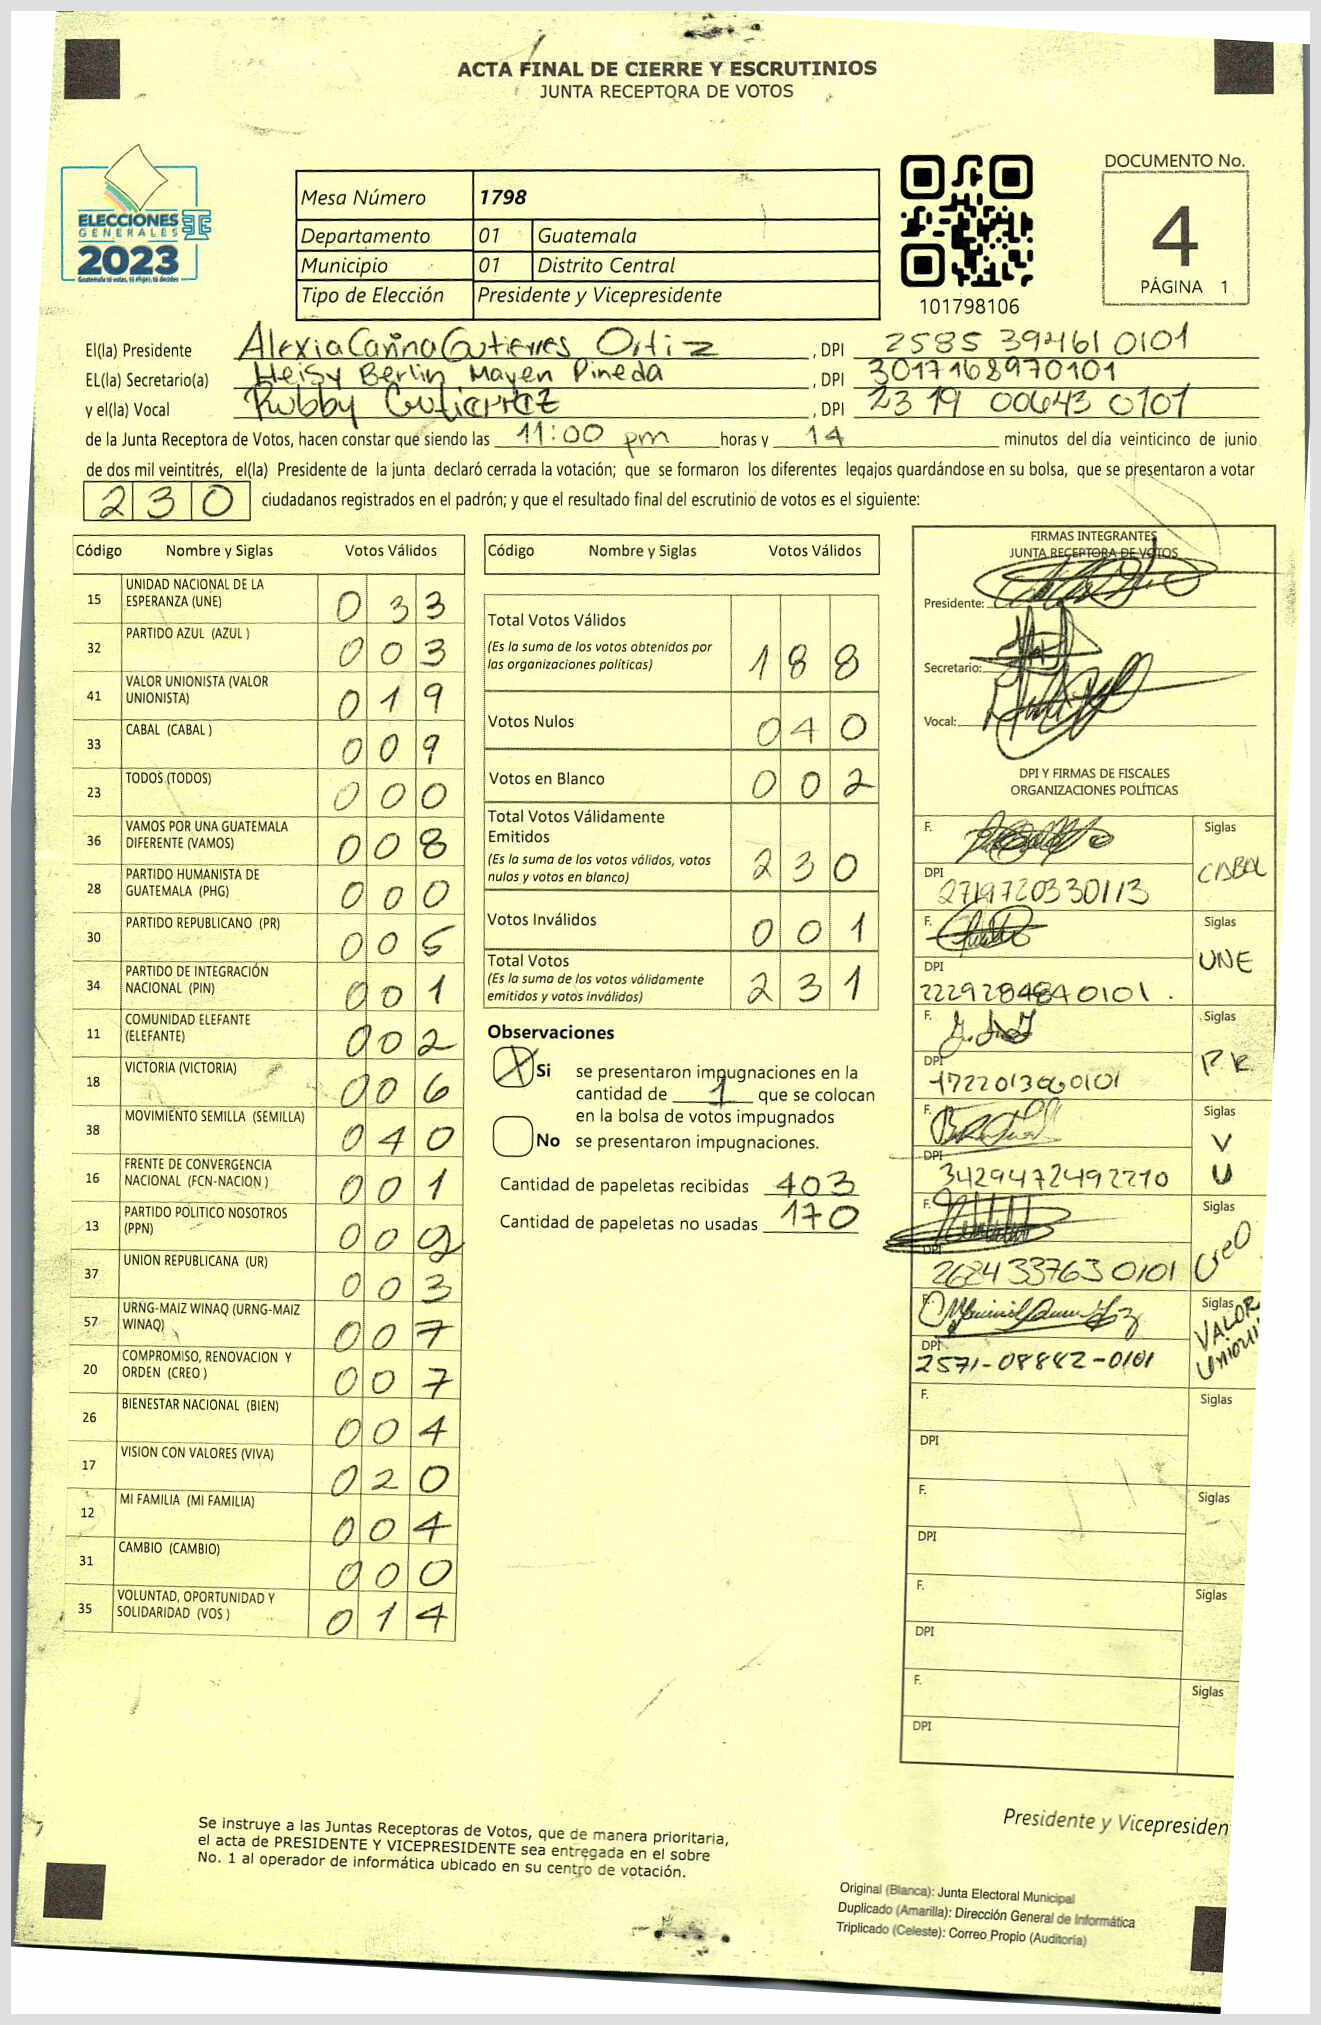 ACTA FINAL DE CIERRE Y ESCRUTINIOS
JUNTA RECEPTORA DE VOTOS
ELECCIONES
GENERALES
2023
Guatemala tú votas, tú eliges, tú decides
Mesa Número 1798
Departamento 01 Guatemala
Municipio 01 Distrito Central
Tipo de Elección Presidente y Vicepresidente
101798106
DOCUMENTO No.
4
PÁGINA 1
El(la) Presidente Alexia Carina Gutierres Ortiz, DPI 2585 39461 0101
EL(la) Secretario(a) Heisy Berlin Mayen Pineda, DPI 3017168970101
y el(la) Vocal Rubby Gutierrez, DPI 2319 00643 0101
de la Junta Receptora de Votos, hacen constar que siendo las 11:00 pm horas y 14 minutos del día veinticinco de junio
de dos mil veintitrés, el(la) Presidente de la junta declaró cerrada la votación; que se formaron los diferentes legajos guardándose en su bolsa, que se presentaron a votar
230 ciudadanos registrados en el padrón; y que el resultado final del escrutinio de votos es el siguiente:
Código Nombre y Siglas Votos Válidos
15 UNIDAD NACIONAL DE LA ESPERANZA (UNE) 033
32 PARTIDO AZUL (AZUL ) 003
41 VALOR UNIONISTA (VALOR UNIONISTA) 019
33 CABAL (CABAL ) 009
23 TODOS (TODOS) 000
36 VAMOS POR UNA GUATEMALA DIFERENTE (VAMOS) 008
28 PARTIDO HUMANISTA DE GUATEMALA (PHG) 000
30 PARTIDO REPUBLICANO (PR) 005
34 PARTIDO DE INTEGRACIÓN NACIONAL (PIN) 001
11 COMUNIDAD ELEFANTE (ELEFANTE) 002
18 VICTORIA (VICTORIA) 006
38 MOVIMIENTO SEMILLA (SEMILLA) 040
16 FRENTE DE CONVERGENCIA NACIONAL (FCN-NACION ) 001
13 PARTIDO POLITICO NOSOTROS (PPN) 002
37 UNION REPUBLICANA (UR) 003
57 URNG-MAIZ WINAQ (URNG-MAIZ WINAQ) 007
20 COMPROMISO, RENOVACION Y ORDEN (CREO ) 007
26 BIENESTAR NACIONAL (BIEN) 004
17 VISION CON VALORES (VIVA) 020
12 MI FAMILIA (MI FAMILIA) 004
31 CAMBIO (CAMBIO) 000
35 VOLUNTAD, OPORTUNIDAD Y SOLIDARIDAD (VOS ) 014
Código Nombre y Siglas Votos Válidos
Total Votos Válidos
(Es la suma de los votos obtenidos por
las organizaciones políticas) 188
Votos Nulos 040
Votos en Blanco 002
Total Votos Válidamente
Emitidos
(Es la suma de los votos válidos, votos
nulos y votos en blanco) 230
Votos Inválidos 001
Total Votos
(Es la suma de los votos válidamente
emitidos y votos inválidos) 231
Observaciones
X Si se presentaron impugnaciones en la
cantidad de 1 que se colocan
en la bolsa de votos impugnados
No se presentaron impugnaciones.
Cantidad de papeletas recibidas 403
Cantidad de papeletas no usadas 170
FIRMAS INTEGRANTES
JUNTA RECEPTORA DE VOTOS
Presidente:
Secretario:
Vocal:
DPI Y FIRMAS DE FISCALES
ORGANIZACIONES POLÍTICAS
F. Siglas
CABAL
DPI
2719720330113
F. Siglas
UNE
DPI
2229284840101.
F. Siglas
PR
DPI
F. Siglas
V
U
DPI
3429472492210
F. Siglas
Creo
DPI
2624337630101
F. Siglas
VALOR
DPI
2571-08842-0101
F. Siglas
DPI
F. Siglas
DPI
F. Siglas
DPI
F. Siglas
DPI
Presidente y Vicepresiden
Se instruye a las Juntas Receptoras de Votos, que de manera prioritaria,
el acta de PRESIDENTE Y VICEPRESIDENTE sea entregada en el sobre
No. 1 al operador de informática ubicado en su centro de votación.
Original (Blanca): Junta Electoral Municipal
Duplicado (Amarilla): Dirección General de Informática
Triplicado (Celeste): Correo Propio (Auditoría)